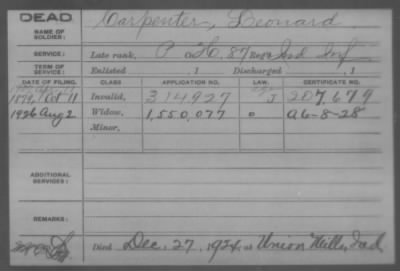 DEAD
NAME OF SOLDIER: Carpenter, Leonard
SERVICE: Late rank, P Co H, 87 Reg't Ind Inf
TERM OF SERVICE: Enlisted , 1 Discharged , 1
DATE OF FILING. CLASS APPLICATION NO. LAW. CERTIFICATE NO.
1879, Oct 11 Invalid, 314927 J 207,679
1926 Aug 2 Widow, 1,550,077 o a6-8-28
Minor,
ADDITIONAL SERVICES:
REMARKS:
Died Dec. 27, 1924, at Union Mills, Ind